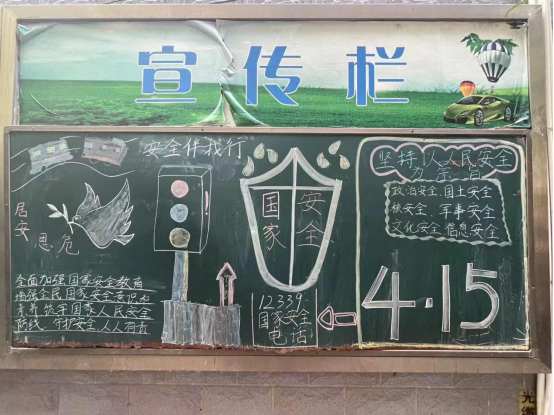 宣传栏
安全伴我行
居安思危
全面加强国家安全教育
增强全民国家安全意识和
素养筑牢国家人民安全
防线，守护安全，人人有责
国家安全
12339
国家安全
电话
坚持以人民安全
为宗旨
政治安全．国土安全
核安全．军事安全
文化安全 信息安全
4·15